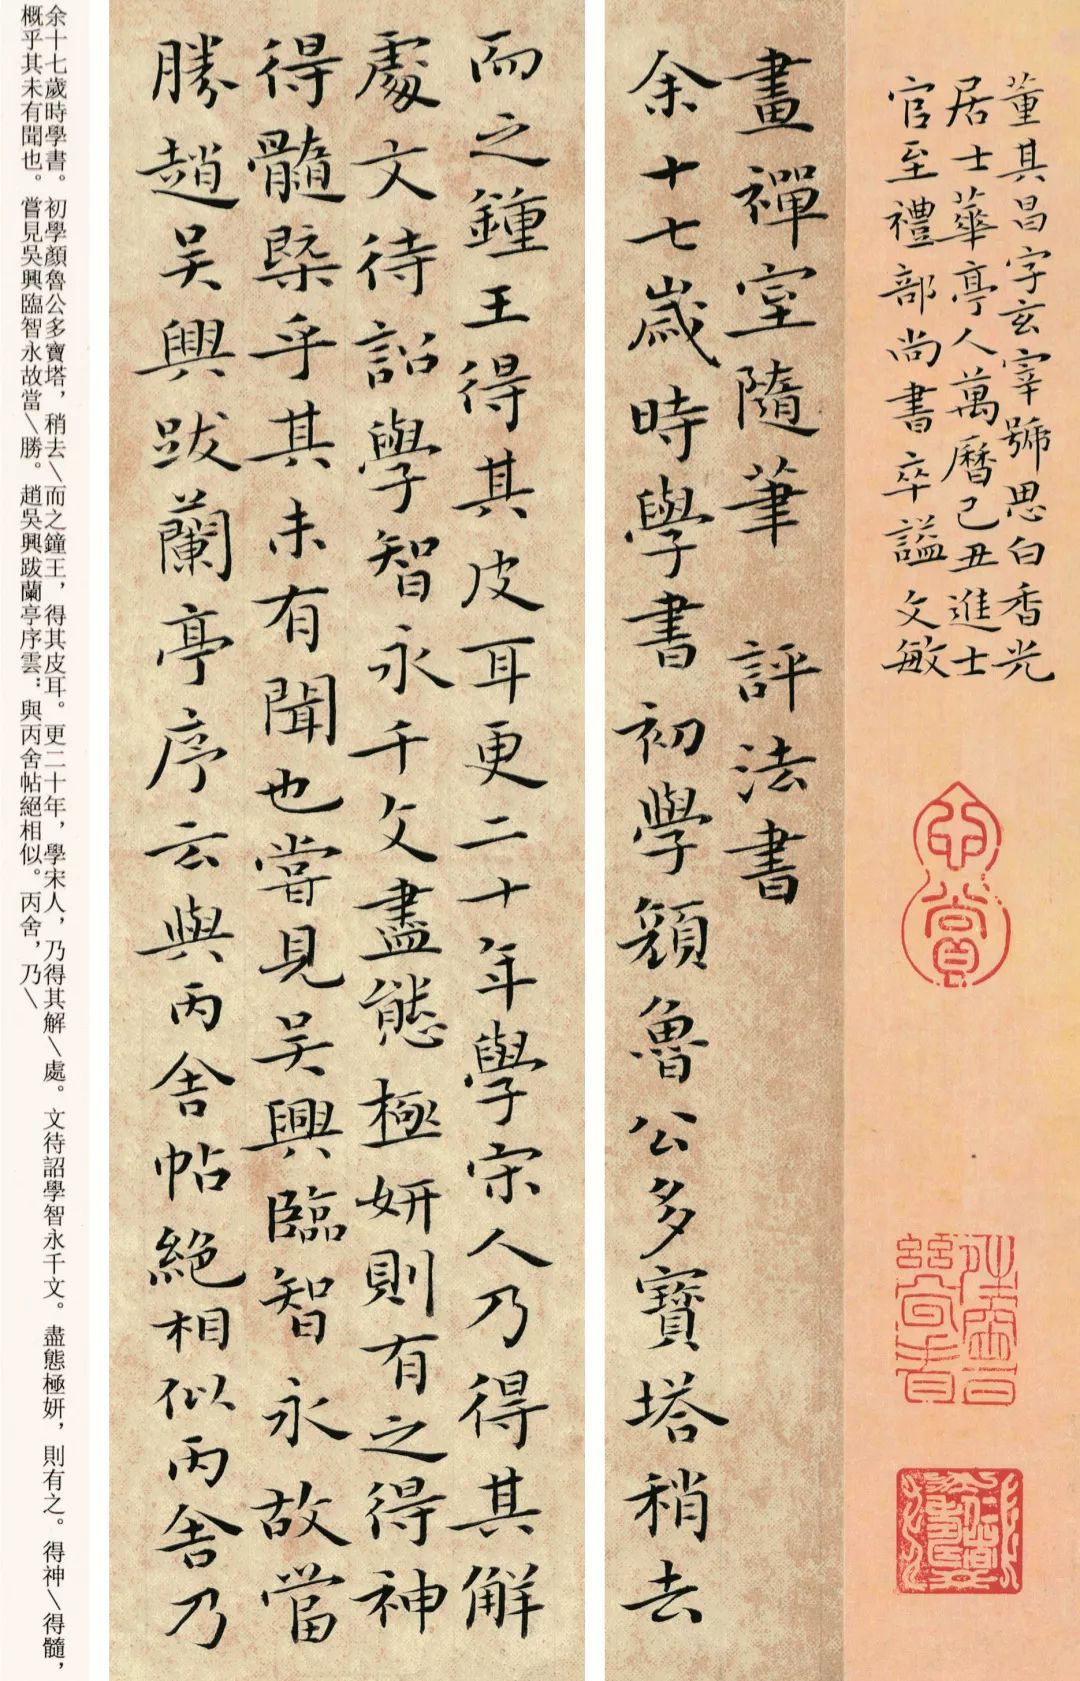 董其昌字玄宰號思白香光
居士華亭人萬曆己丑進士
官至禮部尚書卒謚文敏
畫禪室隨筆 評法書
余十七歲時學書初學顏魯公多寶塔稍去
而之鍾王得其皮耳更二十年學宋人乃得其解
處文待詔學智永千文盡態極妍則有之得神
得髓槩乎其未有聞也嘗見吴興臨智永故當
勝趙吴興跋蘭亭序云與丙舍帖絕相似丙舍乃
余十七歲時學書。初學顏魯公多寶塔，稍去\而之鐘王，得其皮耳。更二十年，學宋人，乃得其解\處。文待詔學智永千文。盡態極妍，則有之。得神\得髓，
概乎其未有聞也。嘗見吳興臨智永故當\勝。趙吳興跋蘭亭序雲：與丙舍帖絕相似。丙舍，乃\